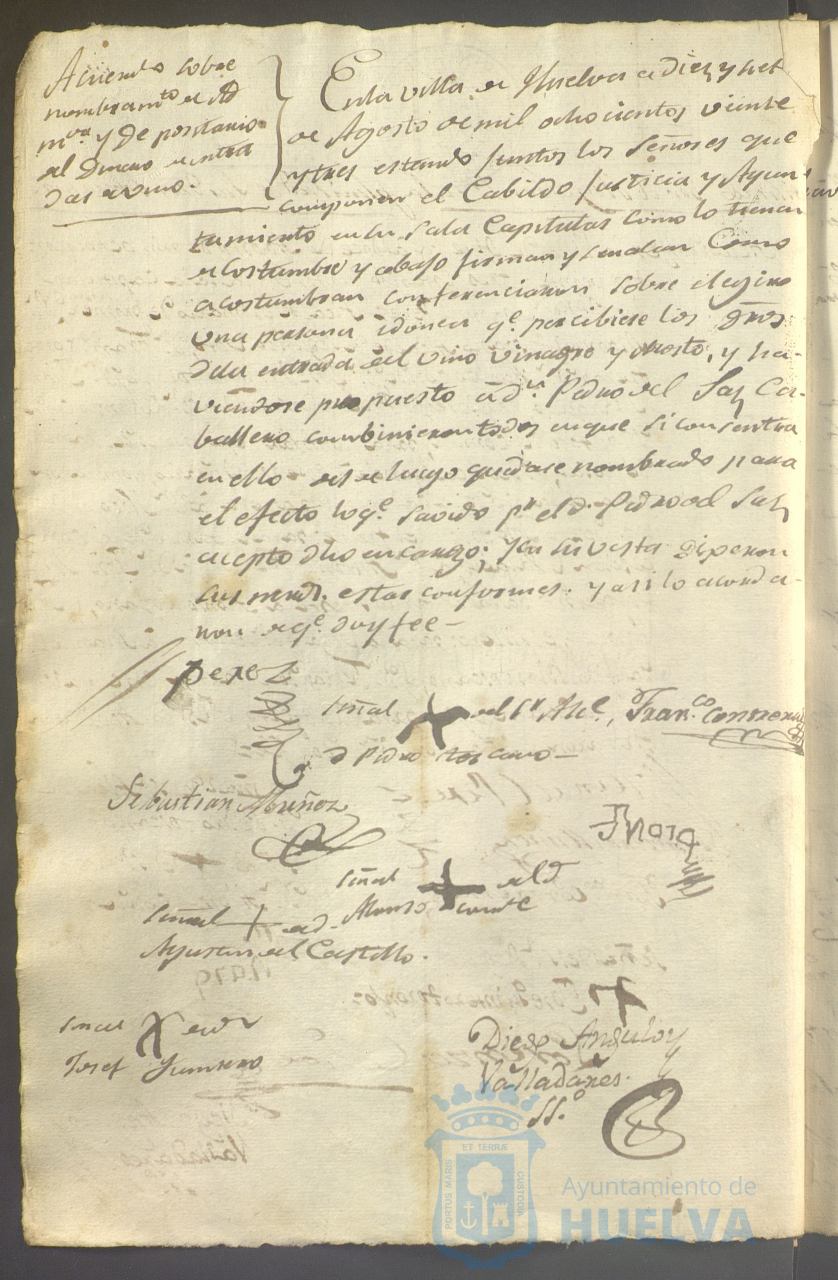 Acuerdo sobre
nombramto de Ad
mor y Depositario
del Dinero de entra
das de vino.
En la villa de Huelva a diez y siet
de Agosto de mil ochocientos veinte
y tres estando juntos los Señores que
componen el Cabildo Justicia y Ayun
tamiento en la Sala Capitular como lo tienen
de costumbre y abajo firman y señalan Como
acostumbran conferenciaron sobre elegir
una persona idonea qe. percibiese los
de la entrada del vino vinagre y mosto, y ha-
viendose propuesto a dn. Pedro del Saz Ca-
ballero combinieron todos en que si consentia
en ello desde luego quedase nombrado para
el efecto lo qe. savido pr el d. Pedro del Saz
acepto dho encargo; y en su vista Dijeron
sus mrds. estar conformes. y asi lo acorda-
ron de qe. doy fee-
Perez
Señal del Sr Alce., Franco Contreras
d Pedro Toscano-
Sebastian Muñoz
Señal del d
Alonso
Señal de d.
Agustin del Castillo.
Señal de dn
Josef
Diego Angulo y
Valladares.
SSo
ET TERRÆ
PORTUS MARIS
CUSTODIA
Ayuntamiento de
HUELVA